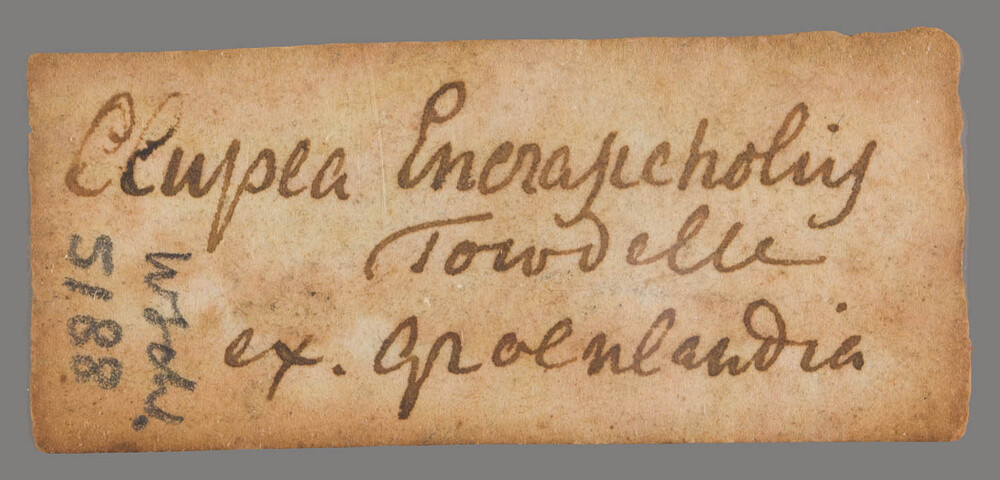 Clupea Encrapcholij
Towdelle
ex. Groenlandia
5188